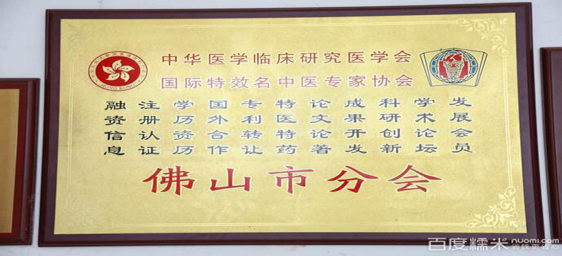 中华医学临床研究医学会
国际特效名中医专家协会
融资信息
注册认证
学历资历
国外合作
专利转让
特医特药
论文论著
成果开发
科研创新
学术论坛
发展会员
佛山市分会
百度糯米 nuomi.com